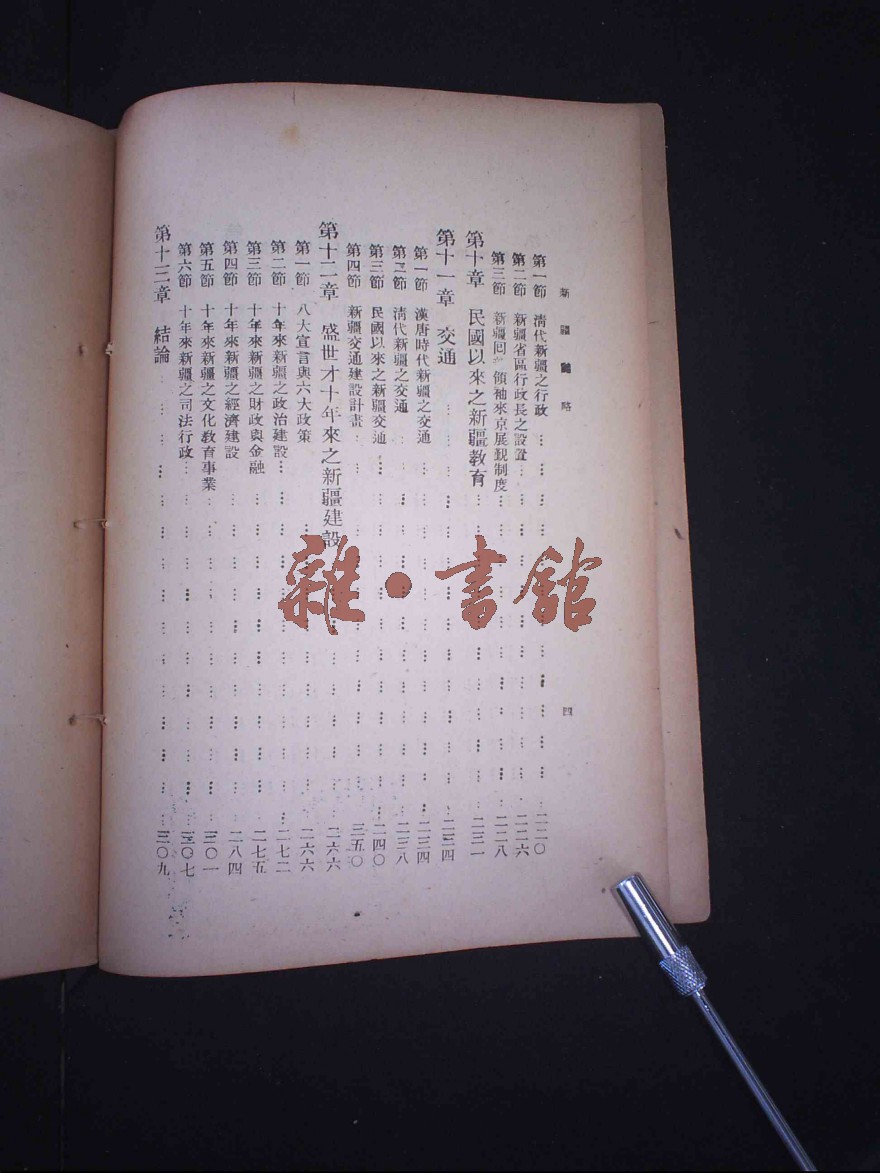 新疆 略
四
第一節 清代新疆之行政……二二〇
第二節 新疆省區行政長之設置……二二六
第三節 新疆回 領袖來京展覲制度……二二八
第十章 民國以來之新疆教育……二三一
第十一章 交通……二三四
第一節 漢唐時代新疆之交通……二三四
第二節 清代新疆之交通……二三八
第三節 民國以來之新疆交通……二四〇
第四節 新疆交通建設計畫……三五〇
第十二章 盛世才十年來之新疆建設……二六六
第一節 八大宣言與六大政策……二六六
第二節 十年來新疆之政治建設……二七二
第三節 十年來新疆之財政與金融……二七五
第四節 十年來新疆之經濟建設……二八四
第五節 十年來新疆之文化教育事業……三〇一
第六節 十年來新疆之司法行政……三〇七
第十三章 結論……三〇九
雜·書館